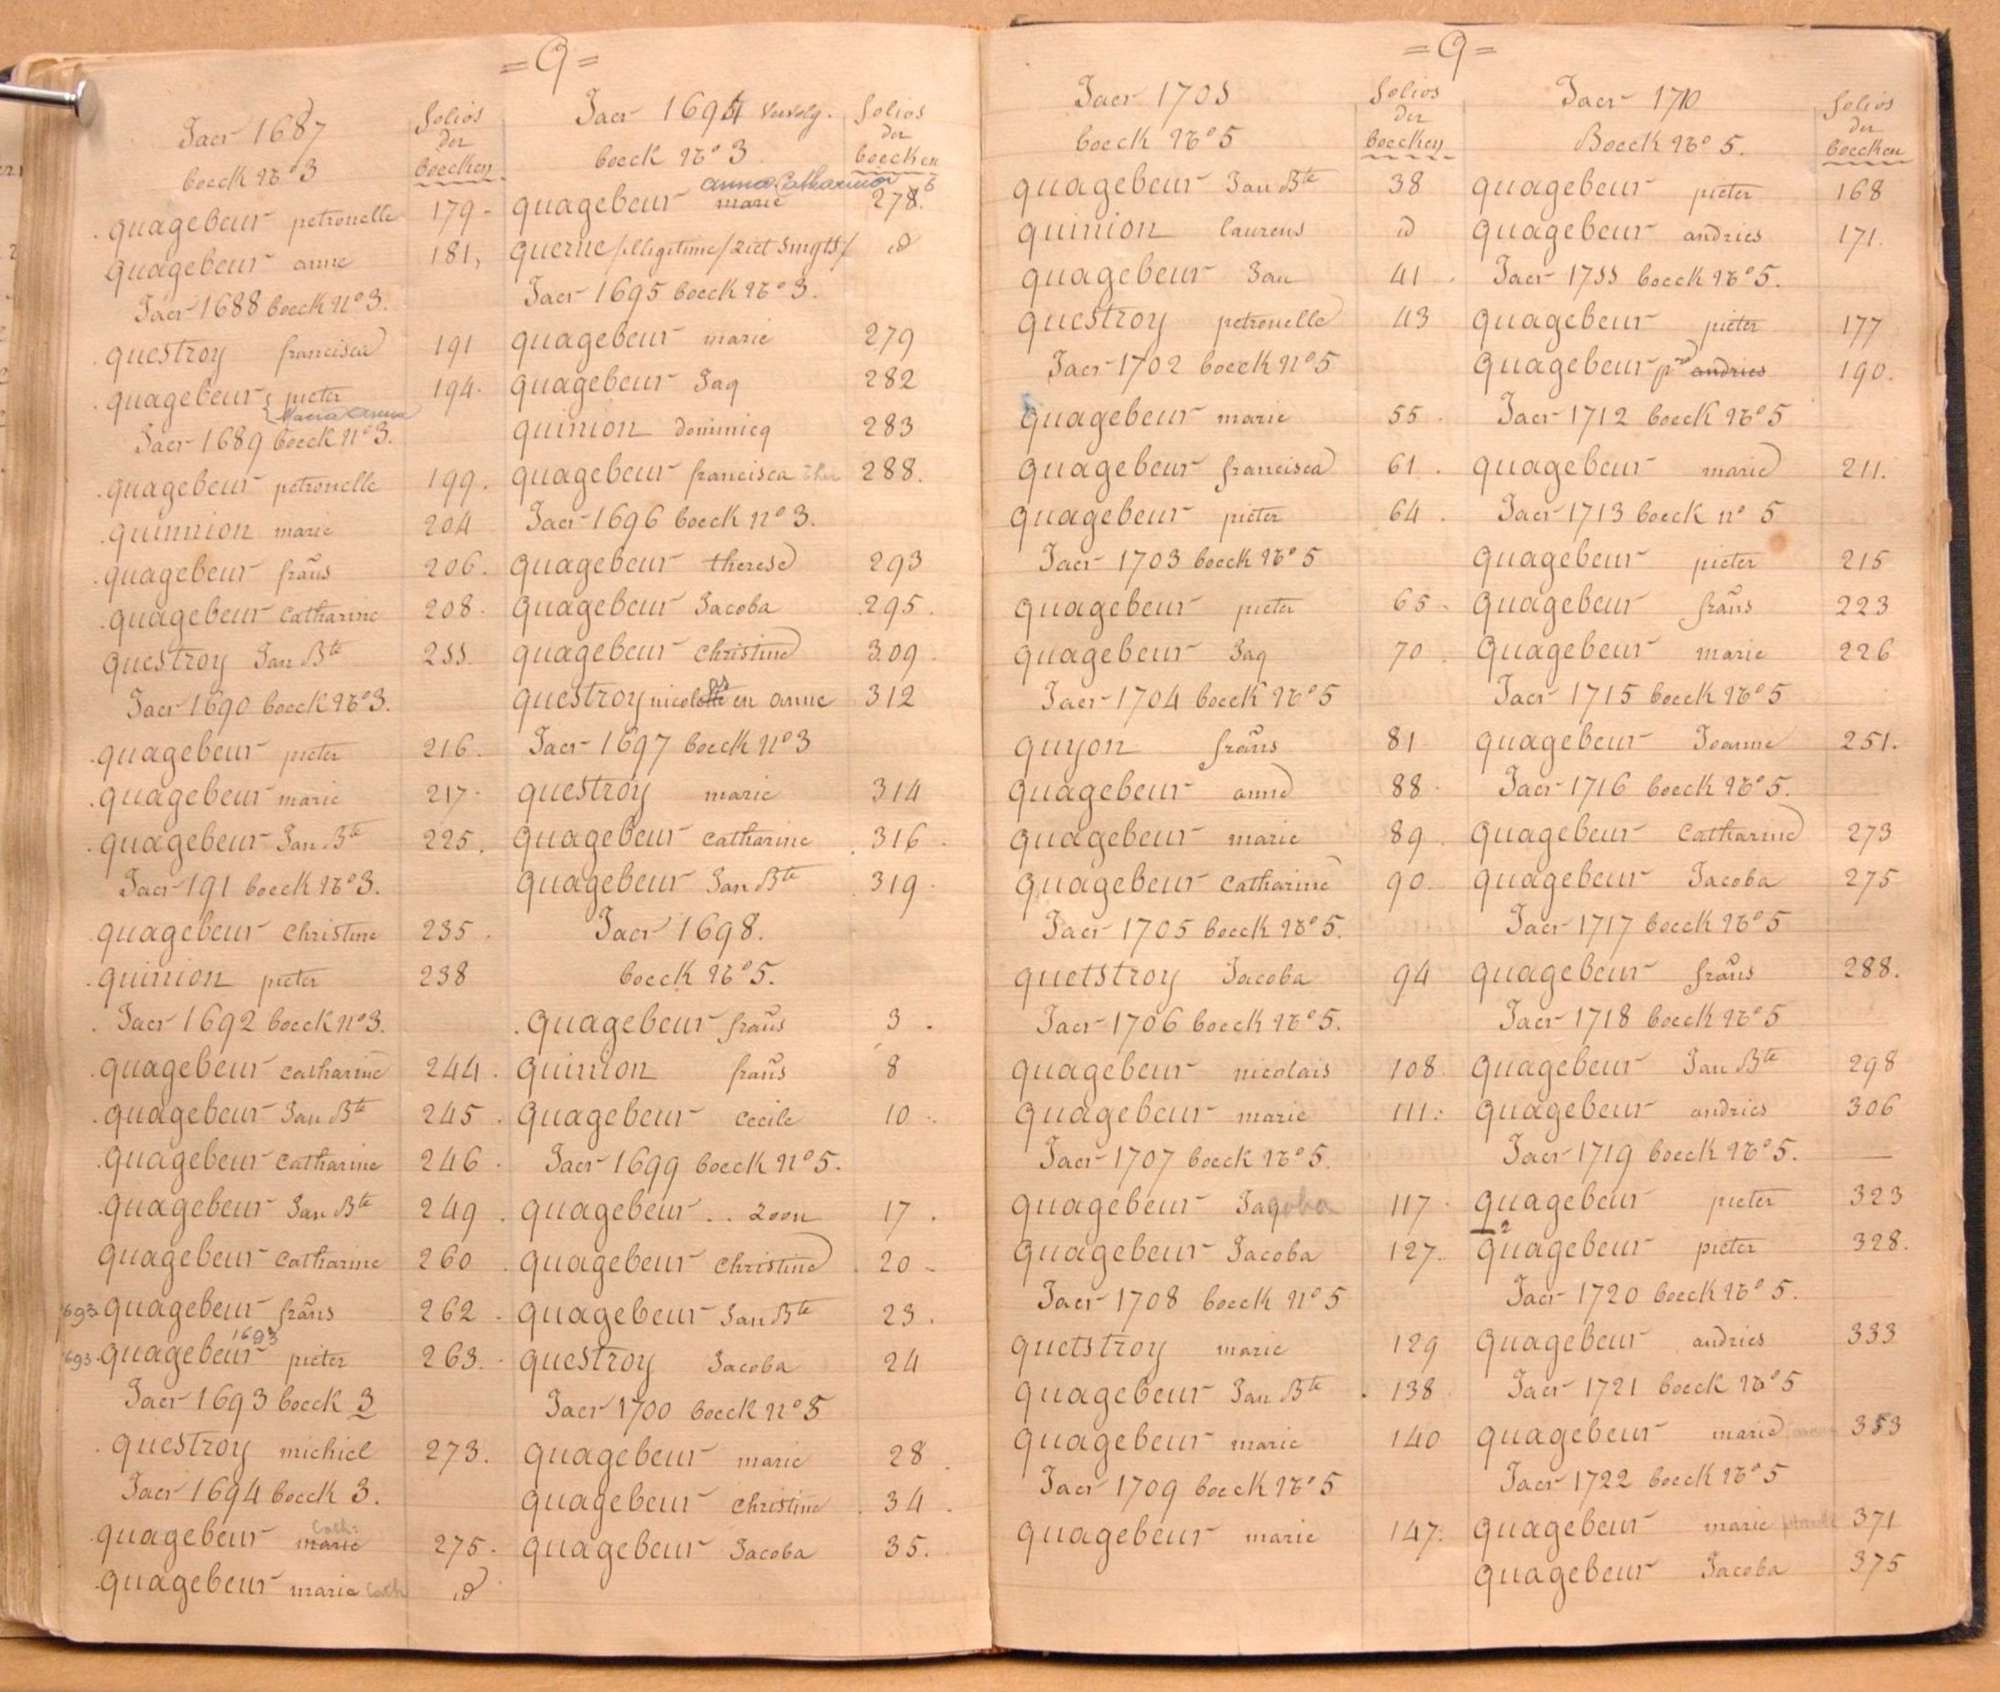 = Q =
Jaer 1687
boeck No 3
folios
der
boecken
quagebeur petronelle 179 -
quagebeur anne 181,
Jaer 1688 boeck No 3.
questroy francisca 191
quagebeur { pieter 194.
{ Maria Anna
Jaer 1689 boeck No 3.
quagebeur petronelle 199.
quinnion marie 204
quagebeur frans 206.
quagebeur catharine 208.
questroy Jan Bte 211.
Jaer 1690 boeck No 3.
quagebeur pieter 216.
quagebeur marie 217.
quagebeur Jan Bte 225.
Jaer 191 boeck No 3.
quagebeur christine 235.
quinion pieter 238
Jaer 1692 boeck No 3.
quagebeur catharine 244.
quagebeur Jan Bte 245.
quagebeur catharine 246.
quagebeur Jan Bte 249.
quagebeur catharine 260.
693 quagebeur frans 262.
1693
693. quagebeur pieter 263.
Jaer 1693 boeck 3
questroy michiel 273.
Jaer 1694 boeck 3.
Cath:
quagebeur marie 275.
quagebeur maria Cath do
Jaer 1694 vervolg.
boeck No 3
folios
der
boecken
anna Catharina 6
quagebeur marie 278.
querne /illegitime/ ziet Smgts/ do
Jaer 1695 boeck No 3.
quagebeur marie 279
quagebeur Jaq 282
quinion dominicq 283
quagebeur francisca Ther 288.
Jaer 1696 boeck No 3.
quagebeur therese 293
quagebeur Jacoba 295.
quagebeur christine 309.
questroy nicolas en anne 312
Jaer 1697 boeck No 3
questroy marie 314
quagebeur catharine 316.
quagebeur Jan Bte 319.
Jaer 1698.
boeck No 5.
quagebeur frans 3.
quinion frans 8
quagebeur cecile 10.
Jaer 1699 boeck No 5.
quagebeur .. zoon 17.
quagebeur christine 20 -
quagebeur Jan Bte 23.
questroy Jacoba 24
Jaer 1700 boeck No 5
quagebeur marie 28.
quagebeur christine 34.
quagebeur Jacoba 35.
= Q =
Jaer 1701
boeck No 5
folios
der
boecken
quagebeur Jan Bte 38
quinion laurens do
quagebeur Jan 41.
questroy petronelle 43
Jaer 1702 boeck No 5
quagebeur marie 55.
quagebeur francisca 61.
quagebeur pieter 64.
Jaer 1703 boeck No 5
quagebeur pieter 65.
quagebeur Jaq 70.
Jaer 1704 boeck No 5
quyon frans 81
quagebeur anne 88.
quagebeur marie 89.
quagebeur catharine 90.
Jaer 1705 boeck No 5.
quetstroy Jacoba 94
Jaer 1706 boeck No 5.
quagebeur nicolais 108.
quagebeur marie 111.
Jaer 1707 boeck No 5.
quagebeur Jaqoba 117.
quagebeur Jacoba 127.
Jaer 1708 boeck No 5
quetstroy marie 129
quagebeur Jan Bte . 138
quagebeur marie 140
Jaer 1709 boeck No 5
quagebeur marie 147.
Jaer 1710
Boeck No 5.
folios
der
boecken
quagebeur pieter 168
quagebeur andries 171.
Jaer 1711 boeck No 5.
quagebeur pieter 177
quagebeur pre andries 190.
Jaer 1712 boeck No 5
quagebeur marie 211.
Jaer 1713 boeck No 5
quagebeur pieter 215
quagebeur frans 223
quagebeur marie 226
Jaer 1715 boeck No 5
quagebeur Joanne 251.
Jaer 1716 boeck No 5.
quagebeur Catharine 273
quagebeur Jacoba 275
Jaer 1717 boeck No 5
quagebeur frans 288.
Jaer 1718 boeck No 5
quagebeur Jan Bte 298
quagebeur andries 306
Jaer 1719 boeck No 5.
quagebeur pieter 323
2
quagebeur pieter 328.
Jaer 1720 boeck No 5.
quagebeur andries 333
Jaer 1721 boeck No 5
quagebeur marie 353
Jaer 1722 boeck No 5
quagebeur marie 371
quagebeur Jacoba 375